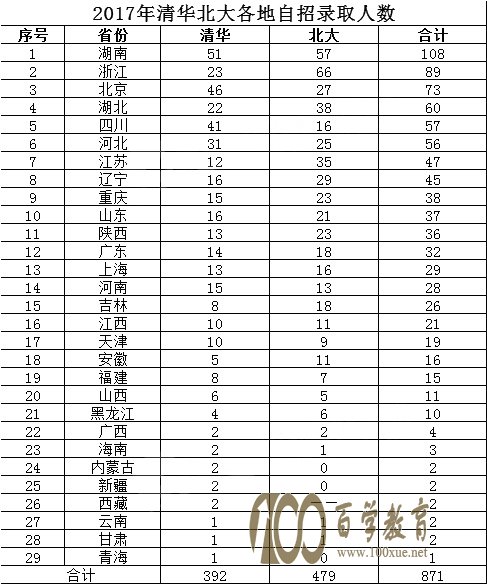 2017年清华北大各地自招录取人数
序号 省份 清华 北大 合计
1 湖南 51 57 108
2 浙江 23 66 89
3 北京 46 27 73
4 湖北 22 38 60
5 四川 41 16 57
6 河北 31 25 56
7 江苏 12 35 47
8 辽宁 16 29 45
9 重庆 15 23 38
10 山东 16 21 37
11 陕西 13 23 36
12 广东 14 18 32
13 上海 13 16 29
14 河南 15 13 28
15 吉林 8 18 26
16 江西 10 11 21
17 天津 10 9 19
18 安徽 5 11 16
19 福建 8 7 15
20 山西 6 5 11
21 黑龙江 4 6 10
22 广西 2 2 4
23 海南 2 1 3
24 内蒙古 2 0 2
25 新疆 2 0 2
26 西藏 2 —— 2
27 云南 1 1 2
28 甘肃 1 1 2
29 青海 1 0 1
合计 392 479 871
100百学教育
www.100xue.net